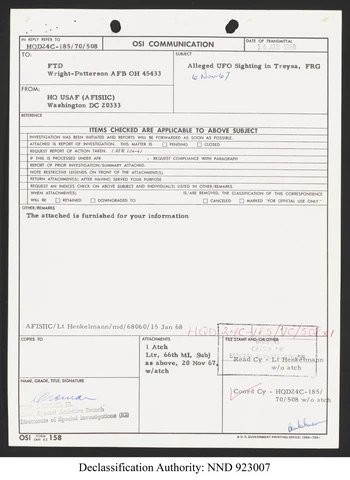 IN REPLY REFER TO
HQD24C-185/70/508
OSI COMMUNICATION
DATE OF TRANSMITTAL
TO:
FTD
Wright-Patterson AFB OH 45433
SUBJECT
Alleged UFO Sighting in Treysa, FRG
6 Nov 67
FROM:
HQ USAF (AFISIIC)
Washington DC 20333
REFERENCE
ITEMS CHECKED ARE APPLICABLE TO ABOVE SUBJECT
INVESTIGATION HAS BEEN INITIATED AND REPORTS WILL BE FORWARDED AS SOON AS POSSIBLE.
ATTACHED IS REPORT OF INVESTIGATION. THIS MATTER IS PENDING CLOSED.
REQUEST REPORT OF ACTION TAKEN.
IF THIS IS PROCESSED UNDER AFR , REQUEST COMPLIANCE WITH PARAGRAPH
REPORT OF PRIOR INVESTIGATION/SUMMARY ATTACHED.
NOTE RESTRICTIVE LEGENDS ON FRONT OF THE ATTACHMENT(S).
RETURN ATTACHMENT(S) AFTER HAVING SERVED YOUR PURPOSE.
REQUEST AN INDICES CHECK ON ABOVE SUBJECT AND INDIVIDUAL(S) LISTED IN OTHER/REMARKS.
WHEN ATTACHMENT(S) IS/ARE REMOVED, THE CLASSIFICATION OF THIS CORRESPONDENCE
WILL BE RETAINED DOWNGRADED TO CANCELED MARKED "FOR OFFICIAL USE ONLY."
OTHER/REMARKS
The attached is furnished for your information
AFISIIC/Lt Henkelmann/md/68060/15 Jan 68
COPIES TO
ATTACHMENTS
1 Atch
Ltr, 66th MI, Subj
as above, 20 Nov 67,
w/atch
FILE STAMP AND/OR OTHER
Read Cy - Lt Henkelmann
w/o atch
Coord Cy - HQD24C-185/
70/508 w/o atch
NAME, GRADE, TITLE, SIGNATURE
Directorate of Special Investigations (IG)
OSI FORM 158
U.S. GOVERNMENT PRINTING OFFICE
Declassification Authority: NND 923007